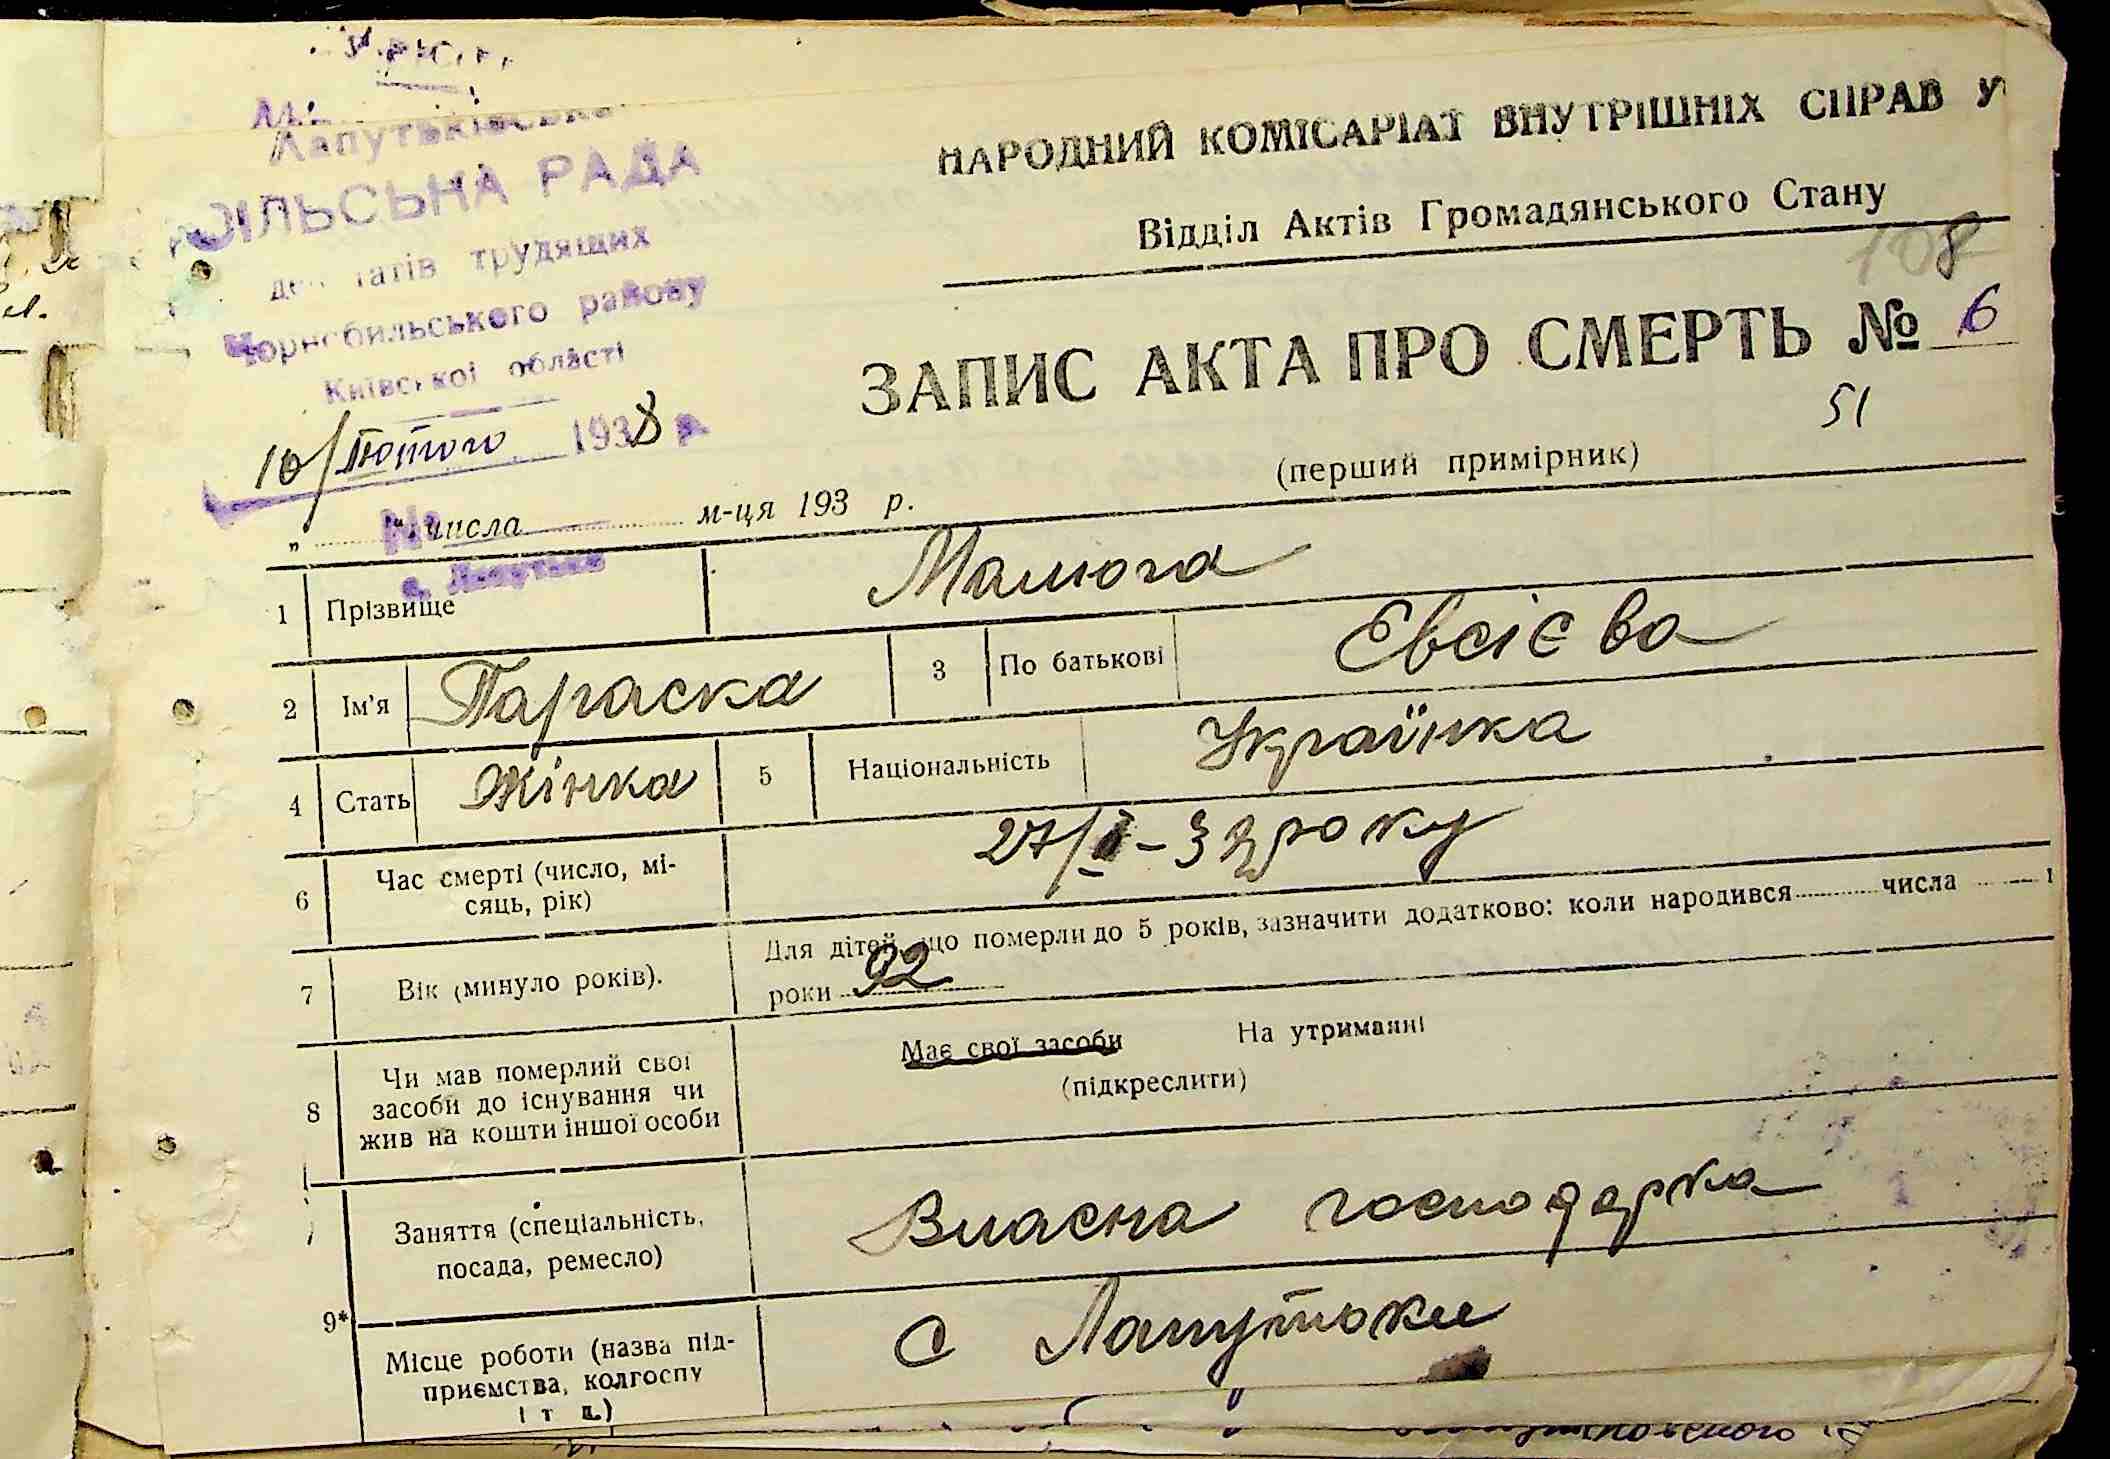 Лапутьківська
СІЛЬСЬКА РАДА
депутатів трудящих
Чорнобильського району
Київської області
10/Лютого 1938 р
№
с. Лапутьки
НАРОДНИЙ КОМІСАРІАТ ВНУТРІШНІХ СПРАВ У
Відділ Актів Громадянського Стану
108
ЗАПИС АКТА ПРО СМЕРТЬ № 6
51
(перший примірник)
„ " числа м-ця 193 р.
1 Прізвище Малюга
2 Ім'я Параска 3 По батькові Евсієва
4 Стать Жінка 5 Національність Українка
6 Час смерті (число, мі-
сяць, рік)
27/I-38 року
7 Вік (минуло років).
Для дітей, що померли до 5 років, зазначити додатково: коли народився числа
роки 92
8 Чи мав померлий свої
засоби до існування чи
жив на кошти іншої особи
Має свої засоби На утриманні
(підкреслити)
9*
Заняття (спеціальність,
посада, ремесло)
Власна господарка
Місце роботи (назва під-
приємства, колгоспу
і т д.)
с Лапутьки